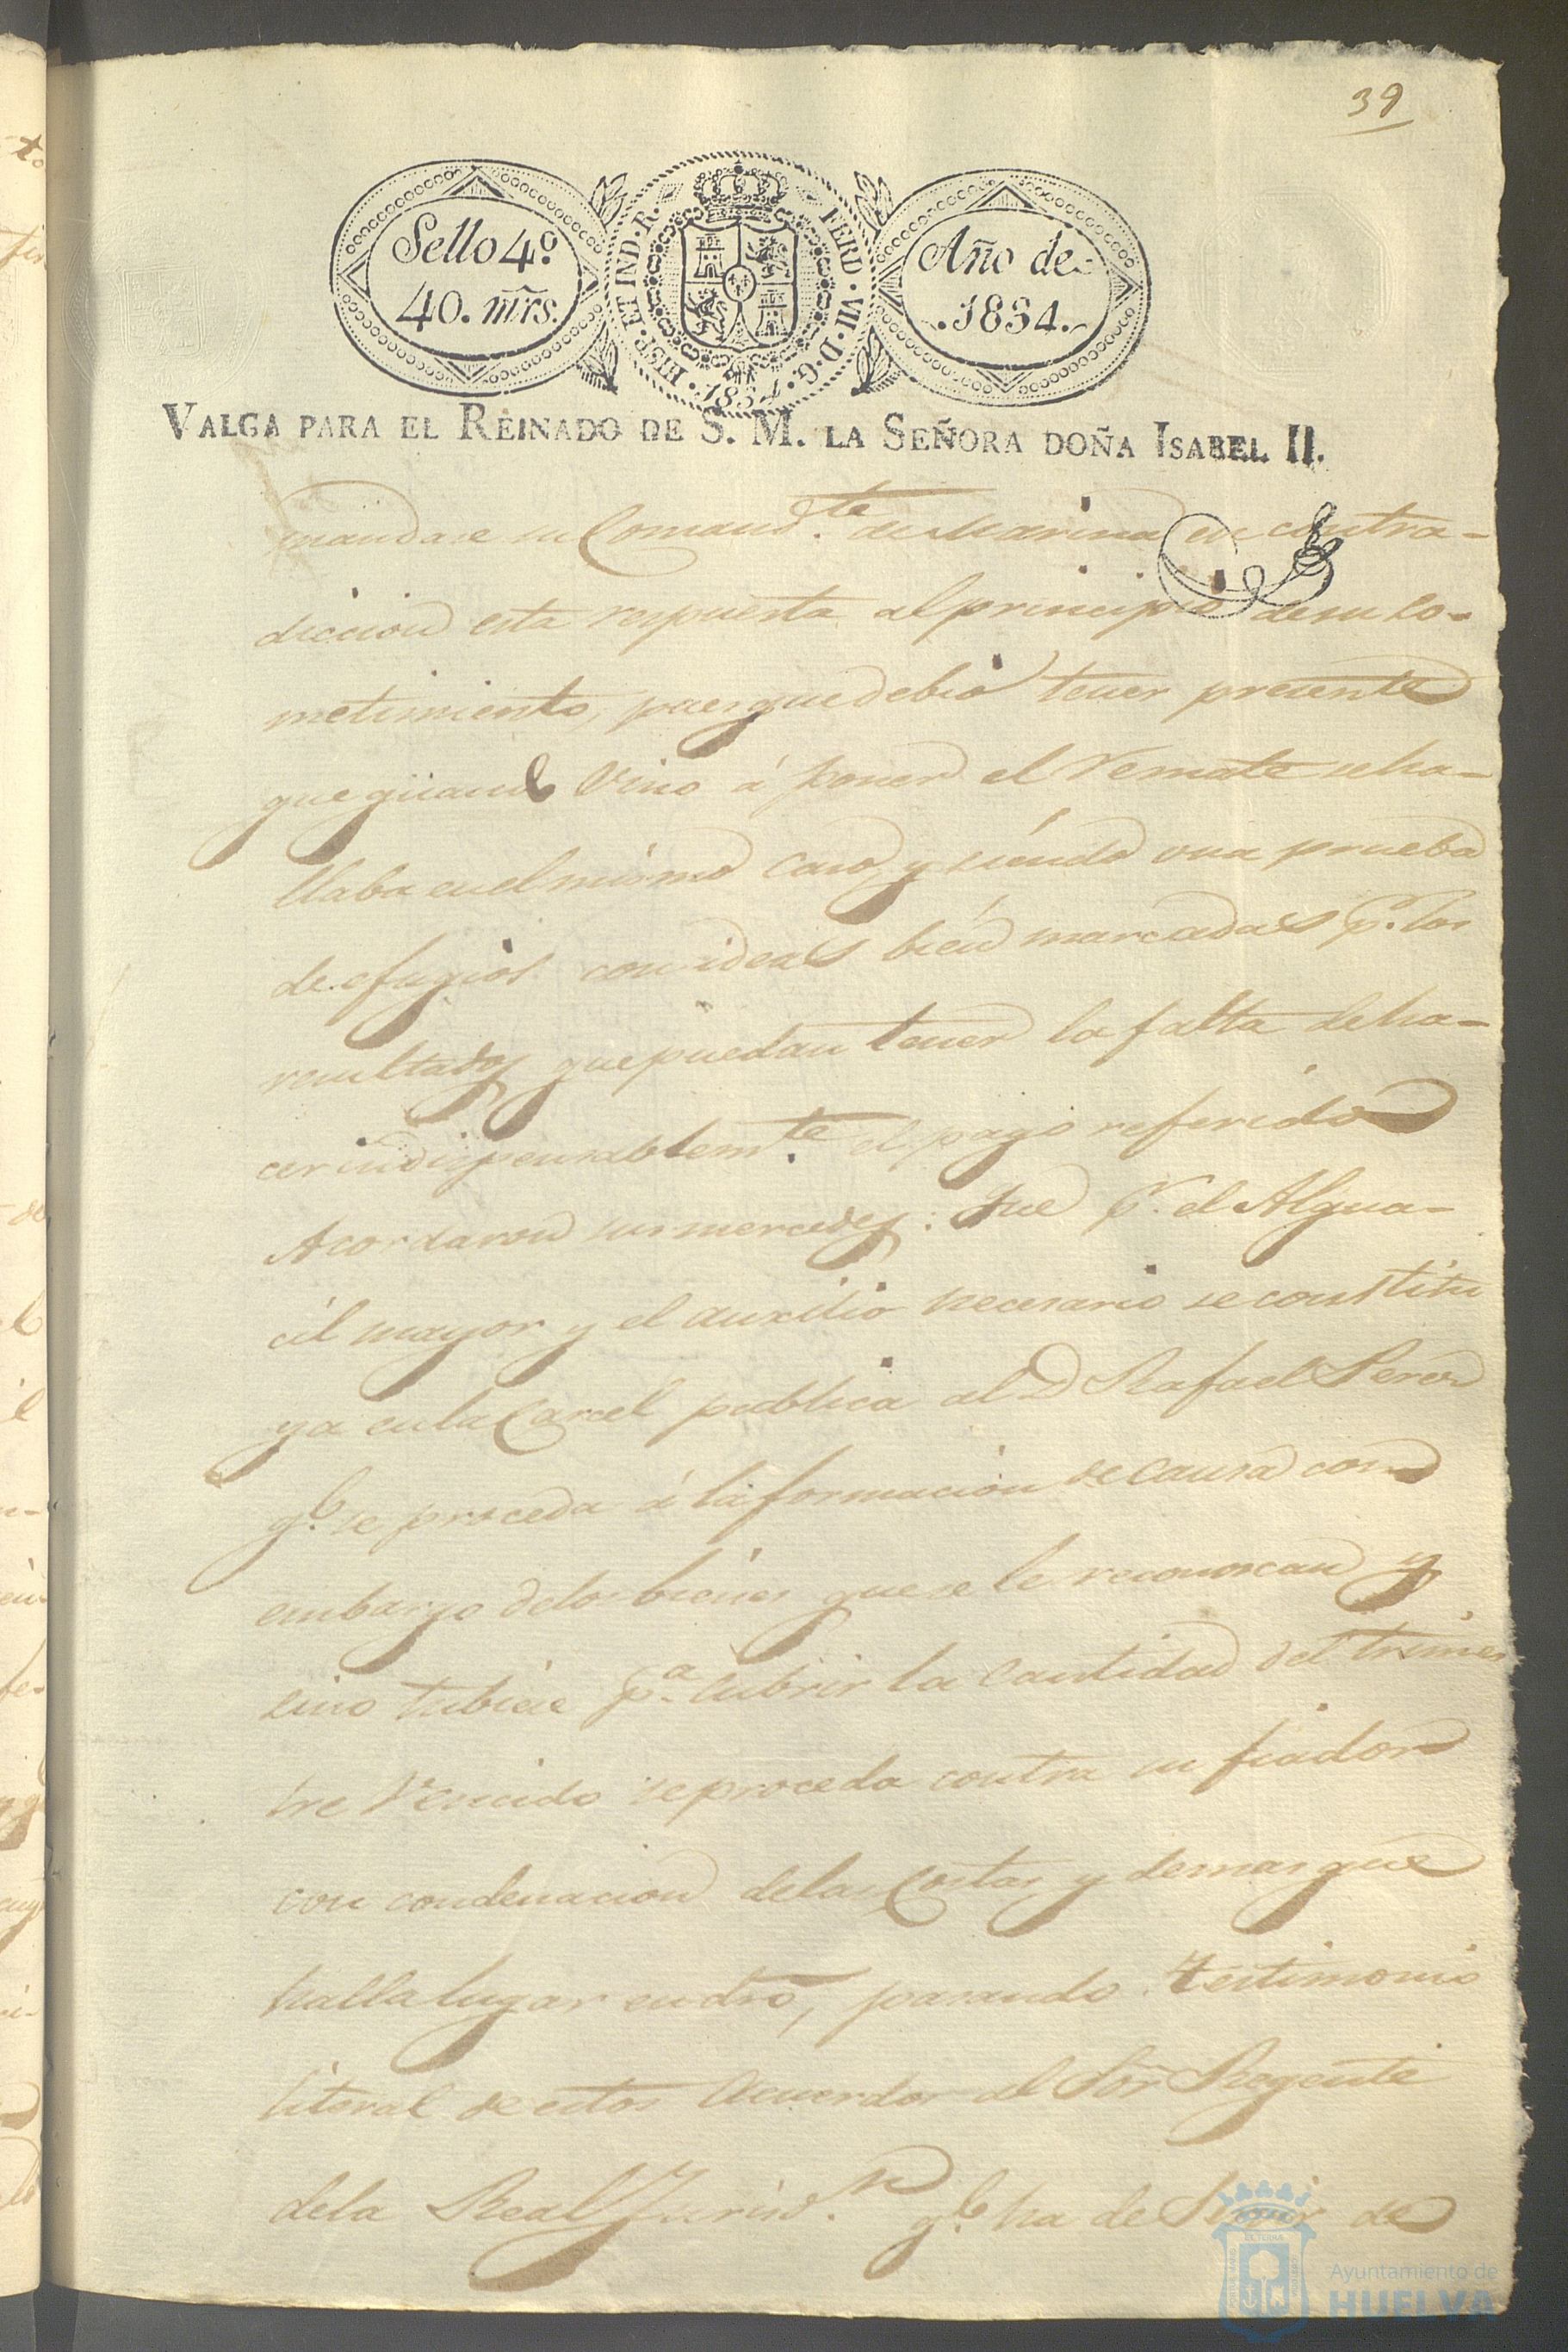 39
Sello 4º
40. mrs.
HISP. ET IND. R.
FERD. VII. D. G.
1834.
Año de
.1834.
VALGA PARA EL REINADO DE S. M. LA SEÑORA DOÑA ISABEL II.
mandase su Comand.te de Marina en contra-
diccion esta respuesta al principio de su so-
metimiento, pues que debió tener presente
que quando vino á poner el remate se ha-
llaba en el mismo caso, y siendo una prueba
de efugios con ideas bien marcadas p.r los
resultados que puedan tener la falta de ha-
cer indispensablem.te el pago referido
Acordaron sus mercedes: Que p.r el Algua-
cil mayor y el auxilio necesario se constitu
ya en la Carcel publica al D Rafael Perez
q.e se proceda á la formacion de causa con
embargo de los bienes que se le reconoscan y
sino tubiese p.a cubrir la cantidad del trimes
tre vencido se proceda contra su fiador
con condenacion de las Costas y demas que
halla lugar en dro, pasando testimonio
literal de estos Acuerdos al Sōr Regente
de la Real Jurisd.n q.e ha de servir de
Ayuntamiento de
HUELVA